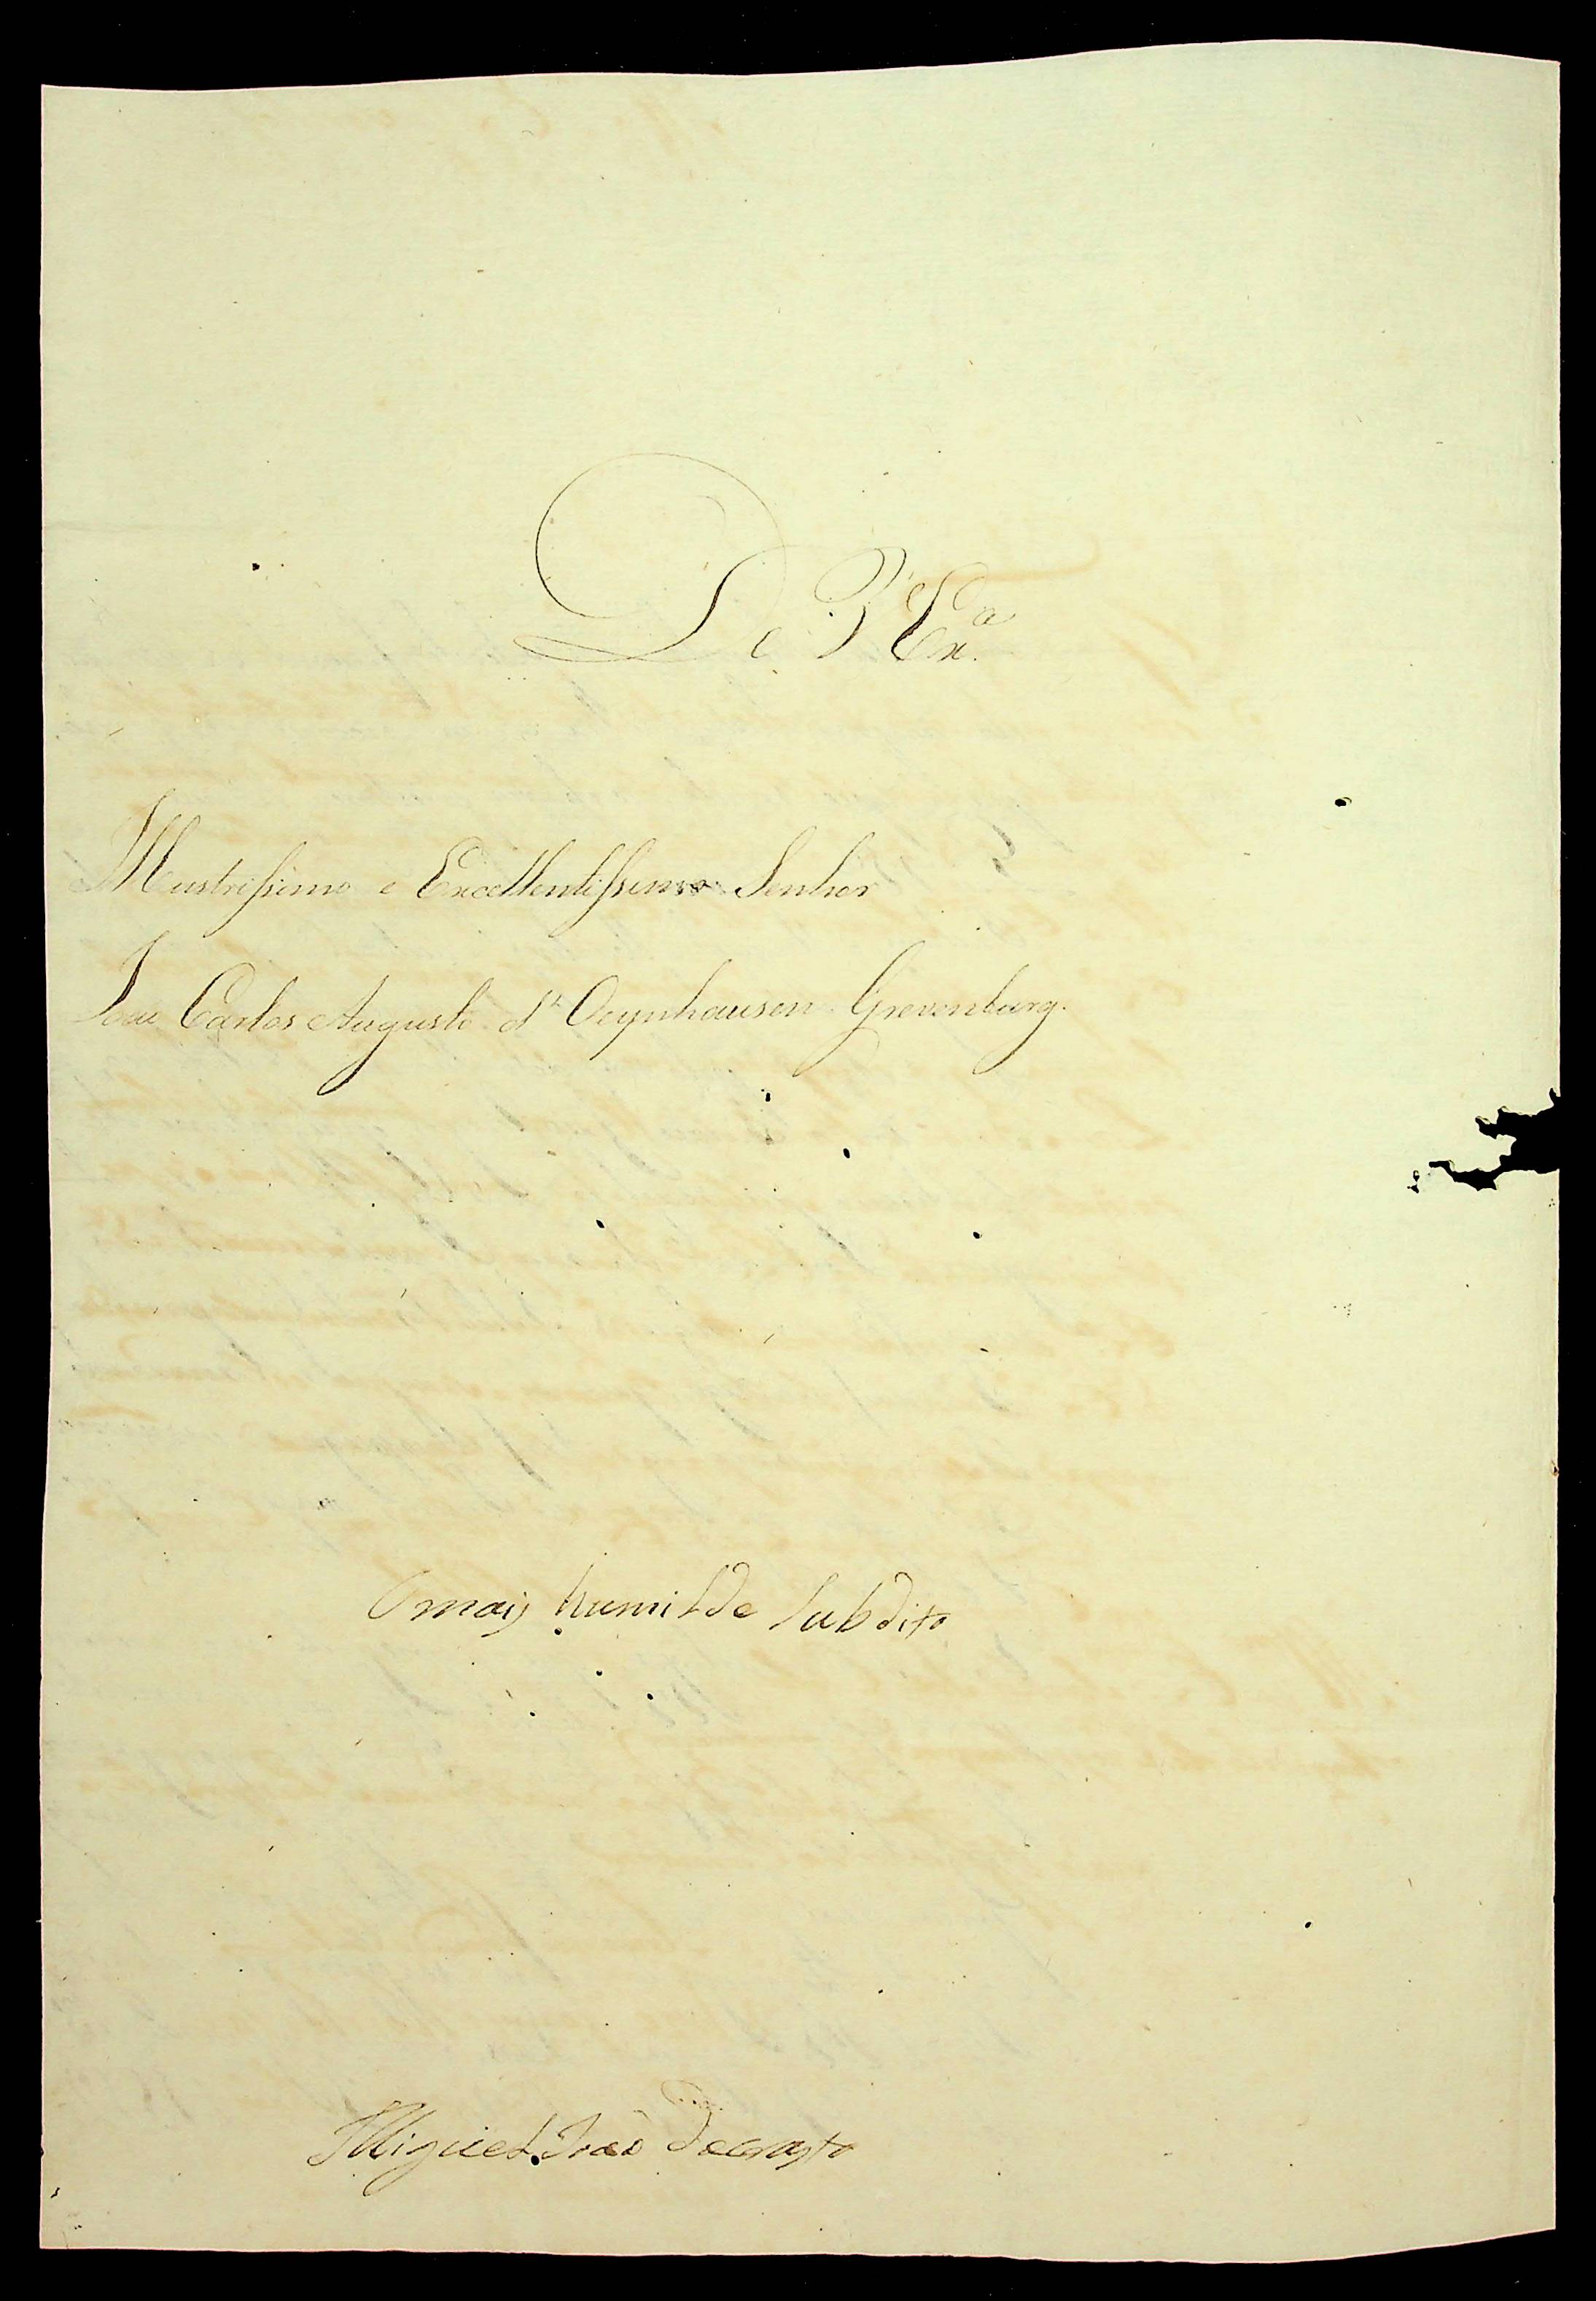 De V Ex.ª
Illustrissimo e Excellentissimo Senhor
João Carlos Augusto d'Oeynhausen Grevenburg.
O mais humilde Subdito
Miguel João Decrasto